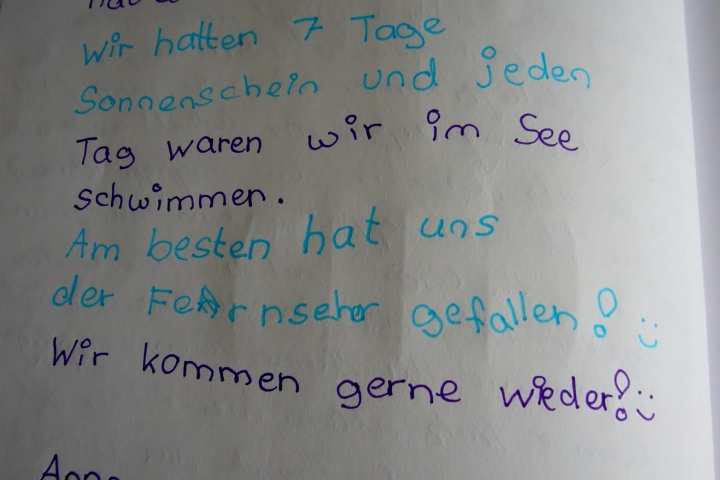 Wir hatten 7 Tage
Sonnenschein und jeden
Tag waren wir im See
schwimmen.
Am besten hat uns
der Fernseher gefallen! :)
Wir kommen gerne wieder! :)